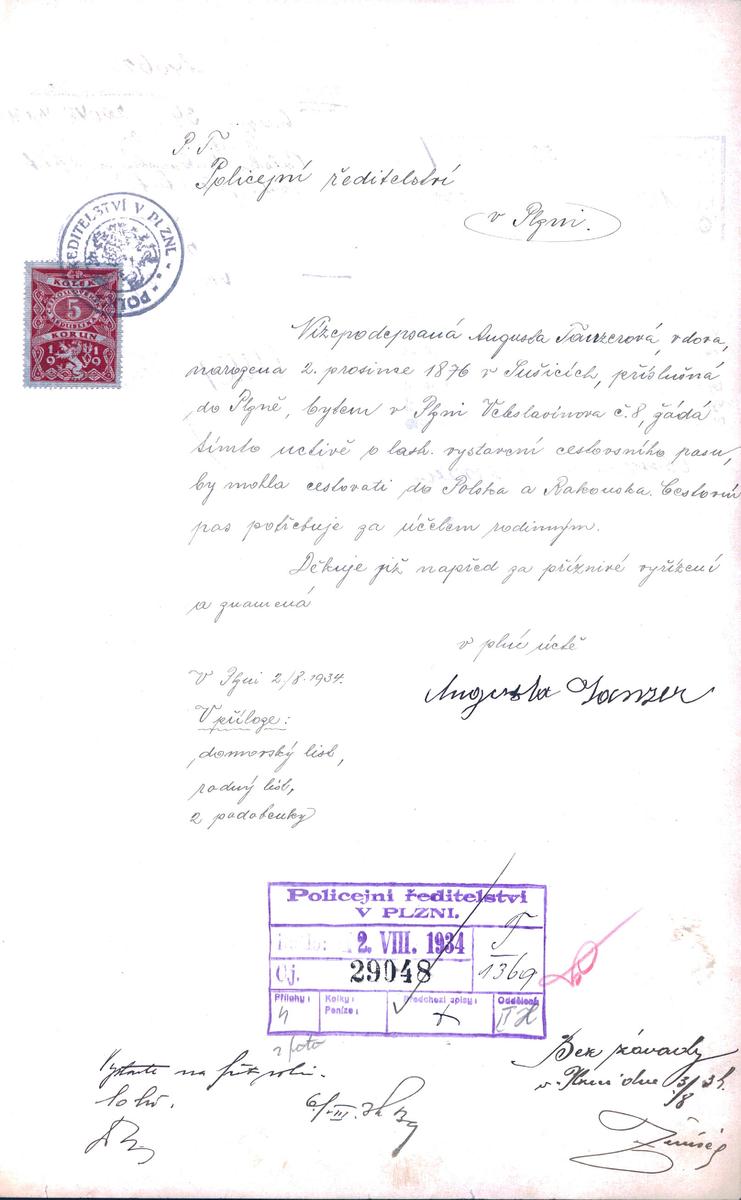 P. T.
Policejní ředitelství
v Plzni.
ŘEDITELSTVÍ V PLZNI
KOLEK
5
KORUN
1919
Nížepodepsaná Augusta Tanzerová, vdova,
narozena 2. prosince 1876 v Sušicích, příslušná
do Plzně, bytem v Plzni Veleslavínova č. 8, žádá
tímto uctivě o lask. vystavení cestovního pasu,
by mohla cestovati do Polska a Rakouska. Cestovní
pas potřebuje za účelem rodinným.
Děkuje již napřed za příznivé vyřízení
a znamená
v plné úctě
V Plzni 2/8. 1934.
Augusta Tanzer
V příloze:
domovský list,
rodný list,
2 podobenky
Policejní ředitelství
V PLZNI.
2. VIII. 1934
Čj. 29048
T
1369
Přílohy: 4
Kolky:
Peníze:
Předchozí spisy:
Oddělení
2 foto
Bez závady
v Plzni dne 3/8 34.